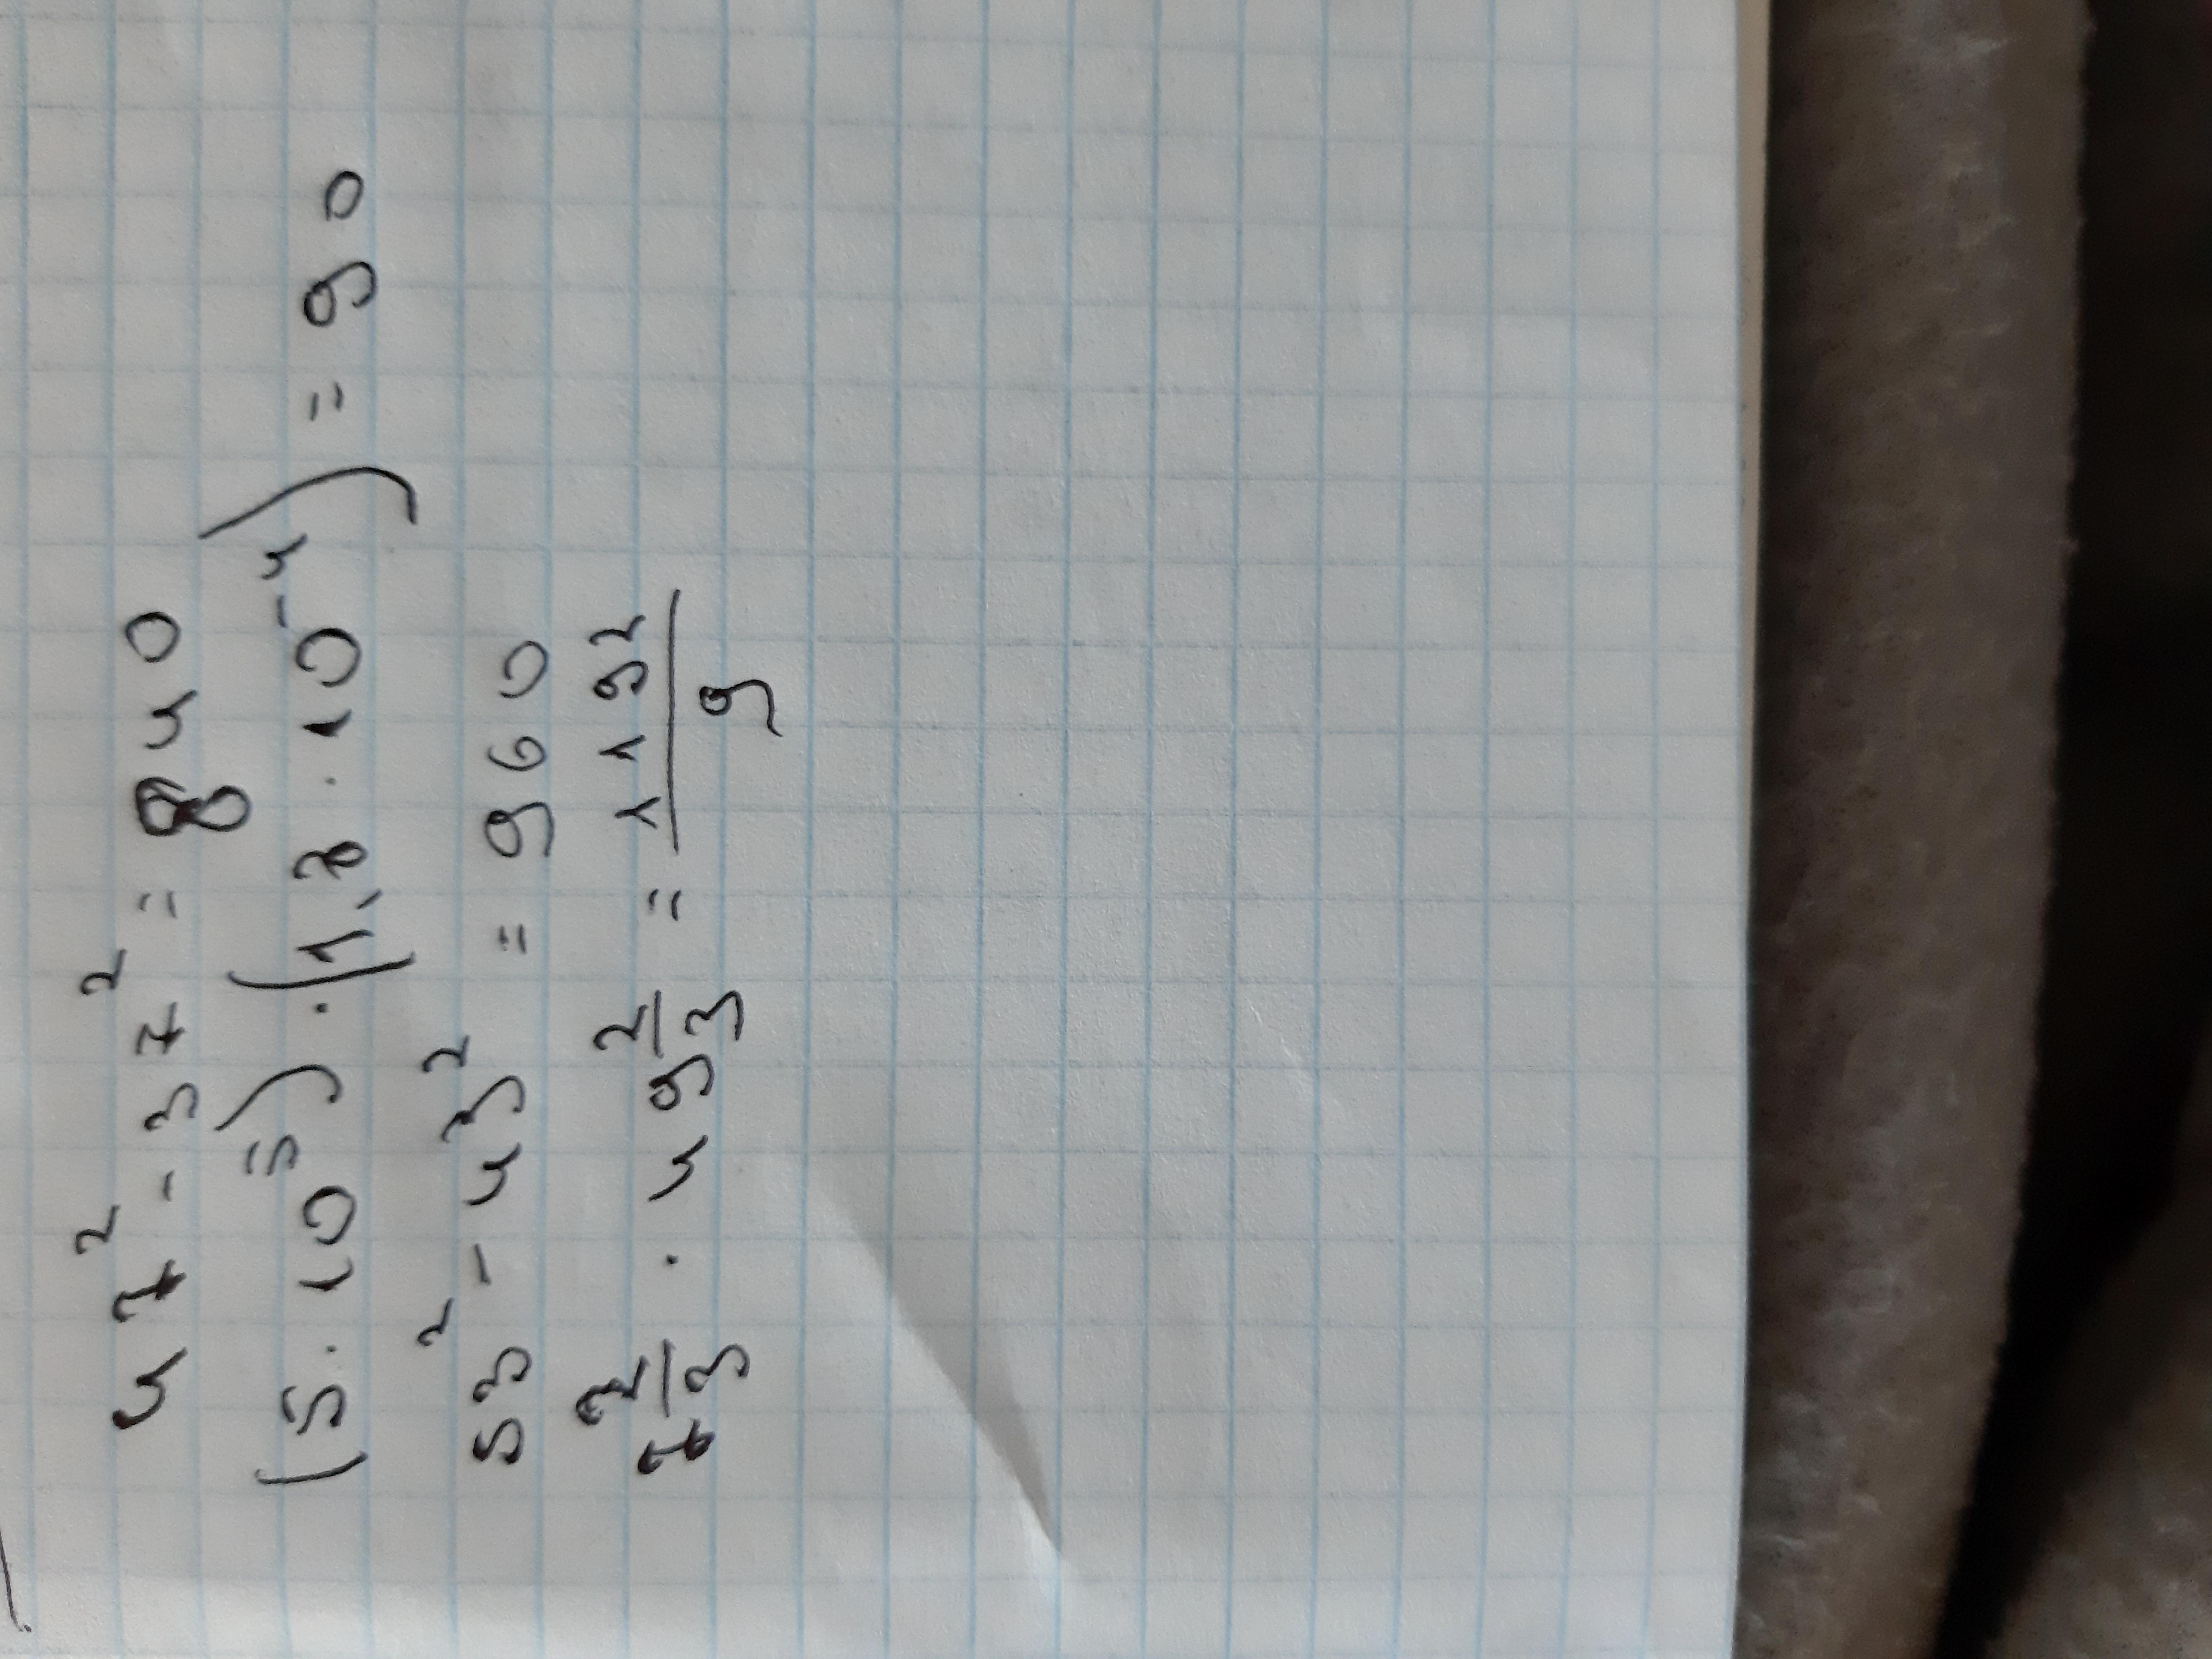 47² - 37² = 840
(5 · 10⁵) · (1,8 · 10⁻⁴) = 90
53² - 43² = 960
7 2/3 · 49 2/3 = 1192/9